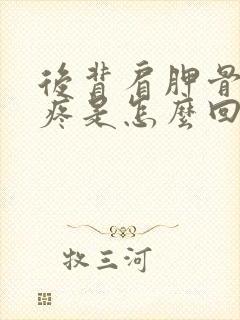 後背肩胛骨
疼是怎麼回
牧三河